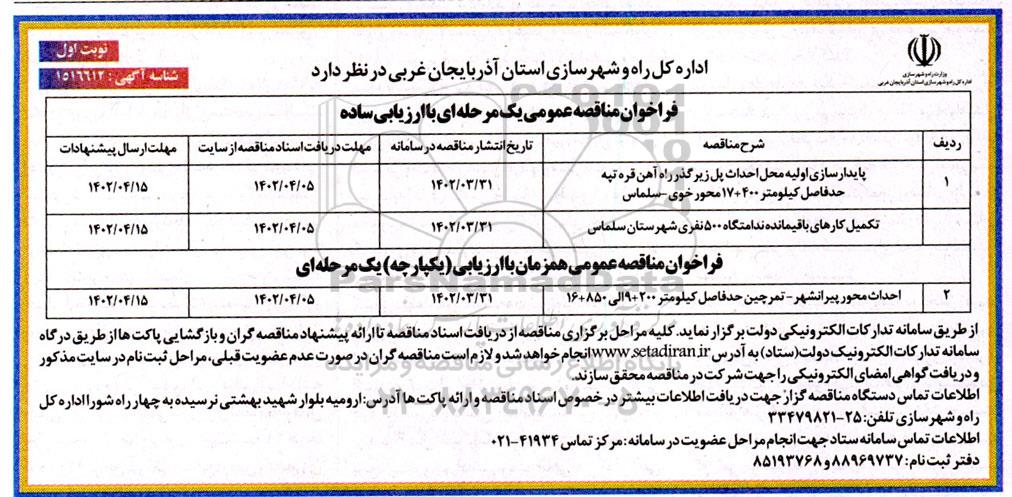 نوبت اول
شناسه آگهی : ۱۵۱۶۶۱۲
وزارت راه و شهرسازی
اداره کل راه و شهرسازی استان آذربایجان غربی
اداره کل راه و شهرسازی استان آذربایجان غربی در نظر دارد
فراخوان مناقصه عمومی یک مرحله ای با ارزیابی ساده
ردیف شرح مناقصه تاریخ انتشار مناقصه در سامانه مهلت دریافت اسناد مناقصه از سایت مهلت ارسال پیشنهادات
۱ پایدارسازی اولیه محل احداث پل زیرگذر راه آهن قره تپه
حدفاصل کیلومتر ۴۰۰+۱۷ محور خوی-سلماس ۱۴۰۲/۰۳/۳۱ ۱۴۰۲/۰۴/۰۵ ۱۴۰۲/۰۴/۱۵
تکمیل کارهای باقیمانده ندامتگاه ۵۰۰ نفری شهرستان سلماس ۱۴۰۲/۰۳/۳۱ ۱۴۰۲/۰۴/۰۵ ۱۴۰۲/۰۴/۱۵
فراخوان مناقصه عمومی همزمان با ارزیابی (یکپارچه) یک مرحله ای
۲ احداث محور پیرانشهر - تمرچین حدفاصل کیلومتر ۲۰۰+۹ الی ۸۵۰+۱۶ ۱۴۰۲/۰۳/۳۱ ۱۴۰۲/۰۴/۰۵ ۱۴۰۲/۰۴/۱۵
از طریق سامانه تدارکات الکترونیکی دولت برگزار نماید. کلیه مراحل برگزاری مناقصه از دریافت اسناد مناقصه تا ارائه پیشنهاد مناقصه گران و بازگشایی پاکت ها از طریق درگاه
سامانه تدارکات الکترونیک دولت (ستاد) به آدرس www.setadiran.ir انجام خواهد شد و لازم است مناقصه گران در صورت عدم عضویت قبلی، مراحل ثبت نام در سایت مذکور
و دریافت گواهی امضای الکترونیکی را جهت شرکت در مناقصه محقق سازند.
اطلاعات تماس دستگاه مناقصه گزار جهت دریافت اطلاعات بیشتر در خصوص اسناد مناقصه و ارائه پاکت ها آدرس: ارومیه بلوار شهید بهشتی نرسیده به چهار راه شورا اداره کل
راه و شهرسازی تلفن: ۲۵-۳۳۴۷۹۸۲۱
اطلاعات تماس سامانه ستاد جهت انجام مراحل عضویت در سامانه: مرکز تماس ۴۱۹۳۴-۰۲۱
دفتر ثبت نام: ۸۸۹۶۹۷۳۷ و ۸۵۱۹۳۷۶۸
ParsNamadData
پایگاه اطلاع رسانی مناقصه و مزایده